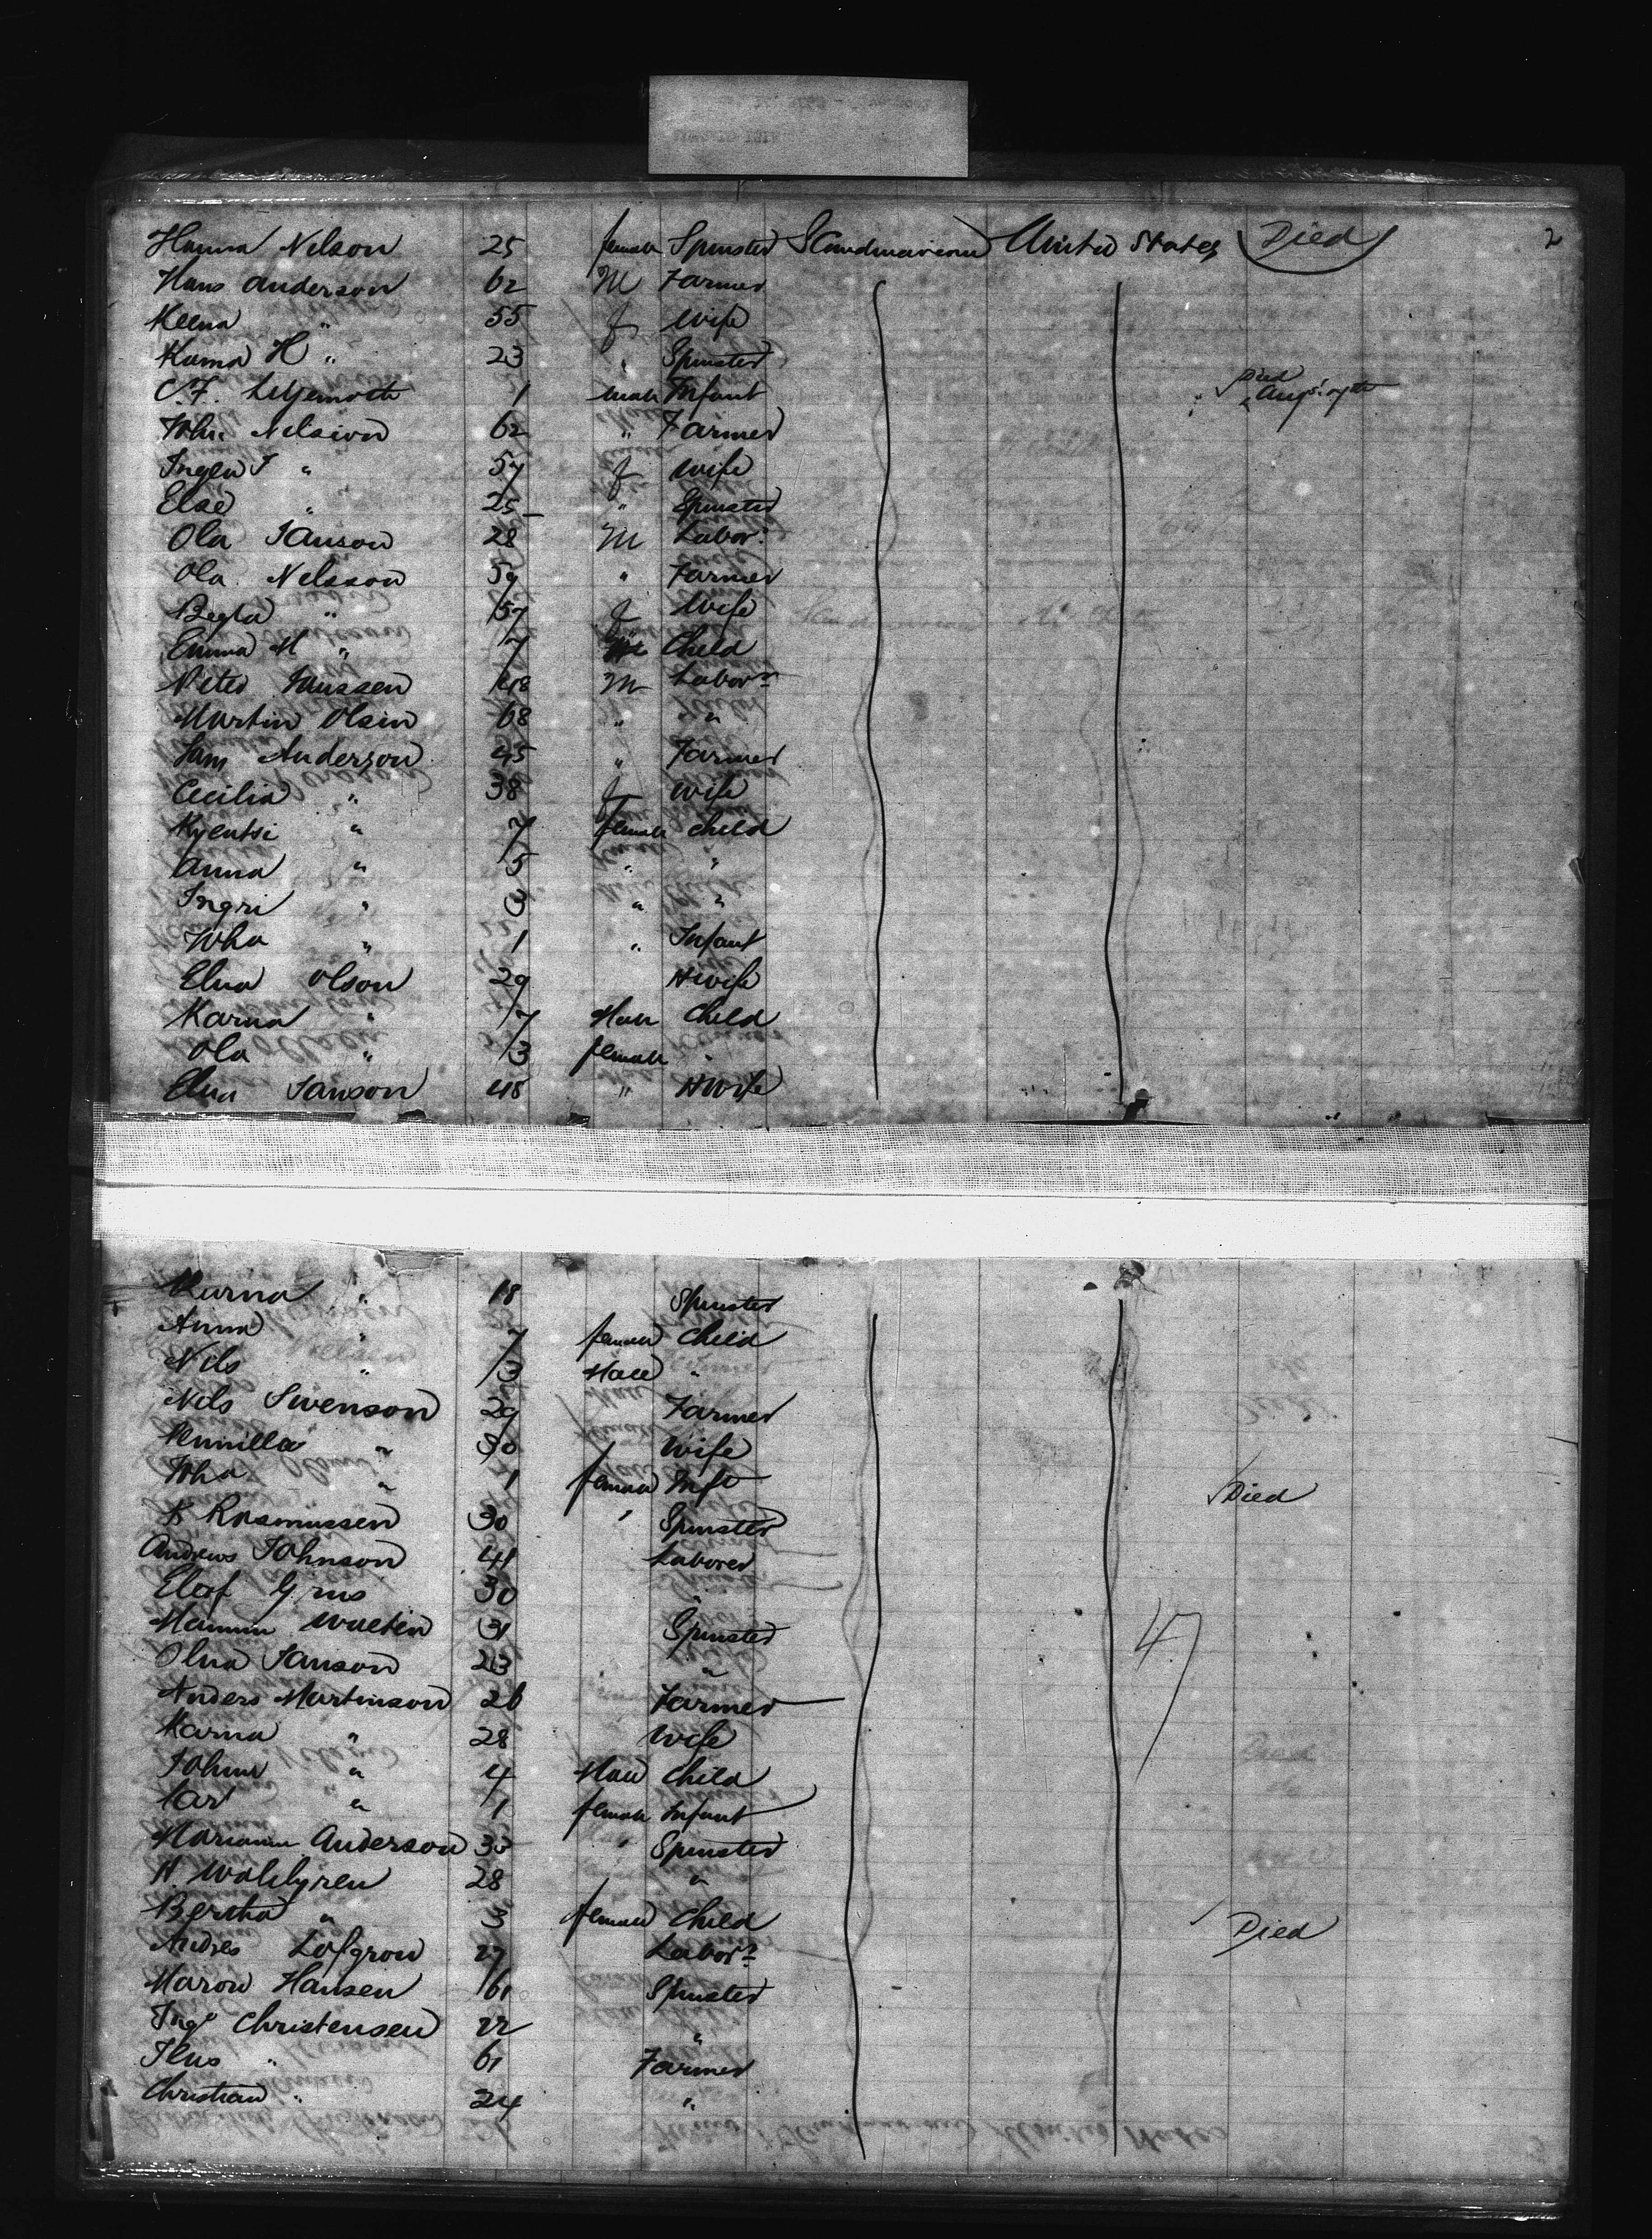 Hanna Nelson 25 female Spinster Scandinavian United States Died 2
Hans Anderson 62 M Farmer
55 f Wife
H " 23 " Spinster
C.F. 1 male Infant Died Augst 7th
John Nelsion 62 " Farmer
Ingla J " 57 f Wife
Else " 25 " Spinster
Ola Janson 28 M Labor
Ola Nelsson 59 " Farmer
Begta " 57 f Wife
Emma M " 7 Child
Peter Janssen 48 M Labor
Martin Olsin 68 " "
Anderson 45 " Farmer
Cecilia " 38 f Wife
" 7 female child
Anna " 5 " "
Ingri " 3 " "
" 1 " Infant
Elna Olson 29 HWife
Karna " 7 Male Child
Ola " 3 female "
Elna Janson 48 " HWife
Karna " 18 Spinster
Anna 7 female Child
Nils " 3 Male "
Nils Swenson 29 Farmer
Pernilla " 30 Wife
" 1 female Inft Died
K Rasmussen 30 " Spinster
Andrews Johnson 41 Laborer
Elof 30 "
31 Spinster
Olna Janson 23 " 47
Anders Martinson 26 Farmer
Karna " 28 Wife
" 4 Male Child
" 1 female Infant
Anderson 33 " Spinster
H. Wahlgren 28 "
Bertha " 3 female Child Died
Andres Lofgron 27 Labor
Hansen 61 Spinster
Christensen 22 "
" 61 Farmer
Christian " 24 "